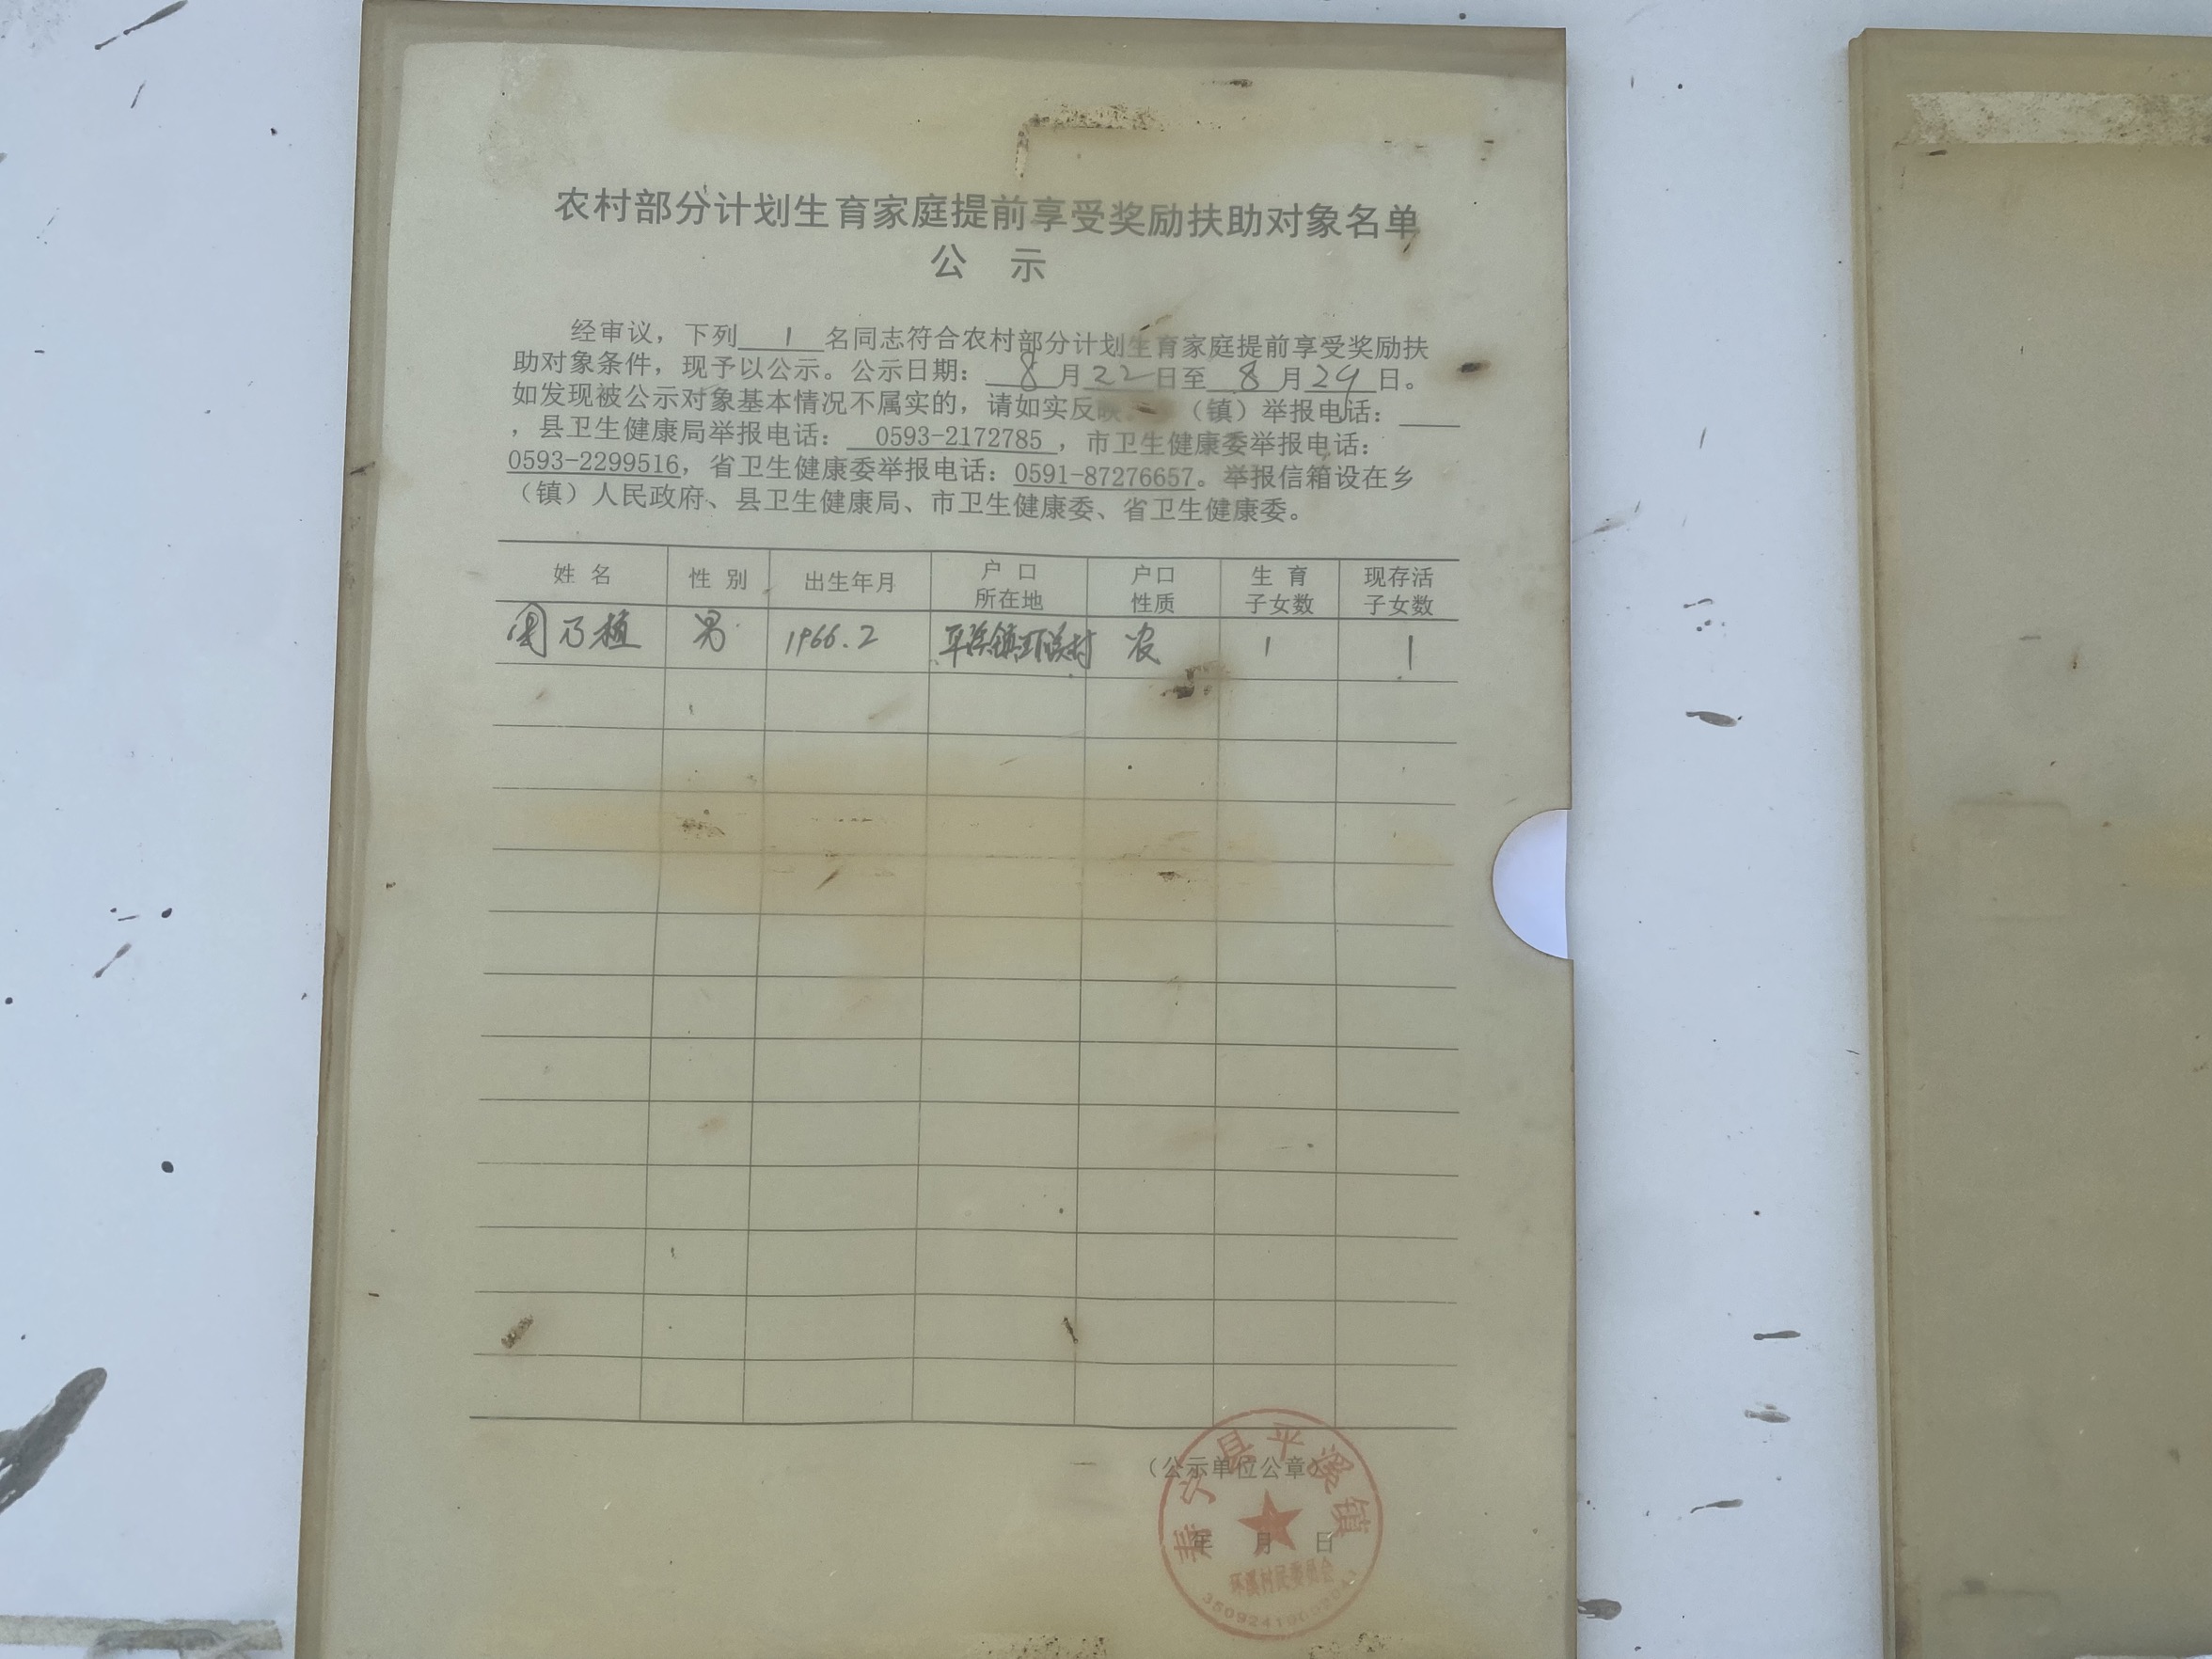 农村部分计划生育家庭提前享受奖励扶助对象名单
公 示
经审议，下列 1 名同志符合农村部分计划生育家庭提前享受奖励扶
助对象条件，现予以公示。公示日期： 8 月 22 日至 8 月 29 日。
如发现被公示对象基本情况不属实的，请如实反映。 （镇）举报电话：
，县卫生健康局举报电话： 0593-2172785 ，市卫生健康委举报电话：
0593-2299516，省卫生健康委举报电话：0591-87276657。举报信箱设在乡
（镇）人民政府、县卫生健康局、市卫生健康委、省卫生健康委。
姓 名 性 别 出生年月 户 口 所在地 户口 性质 生 育 子女数 现存活 子女数
周乃植 男 1966.2 平溪镇环溪村 农 1 1
（公示单位公章）
年 月 日
寿宁县平溪镇
环溪村民委员会